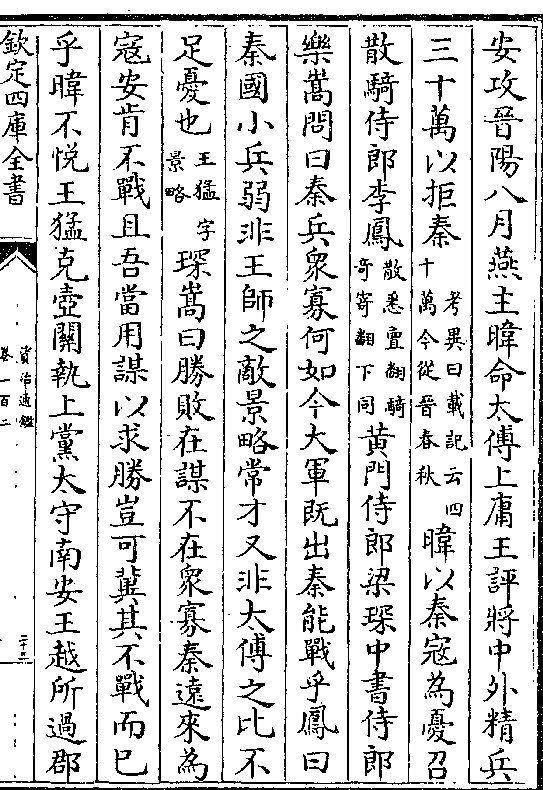 安攻晉陽八月燕主暐命太傅上庸王評將中外精兵
三十萬以拒秦考異曰載記云四十萬今從晉春秋暐以秦寇為憂召
散騎侍郎李鳳散悉亶翻騎奇寄翻下同黄門侍郎梁琛中書侍郎
樂嵩問曰秦兵衆寡何如今大軍既出秦能戰乎鳳曰
秦國小兵弱非王師之敵景略常才又非太傅之比不
足憂也王猛字景略琛嵩曰勝敗在謀不在衆寡秦遠來為
寇安肯不戰且吾當用謀以求勝豈可冀其不戰而已
乎暐不悦王猛克壺關執上黨太守南安王越所過郡
欽定四庫全書
資治通鑑
卷一百二
二十三